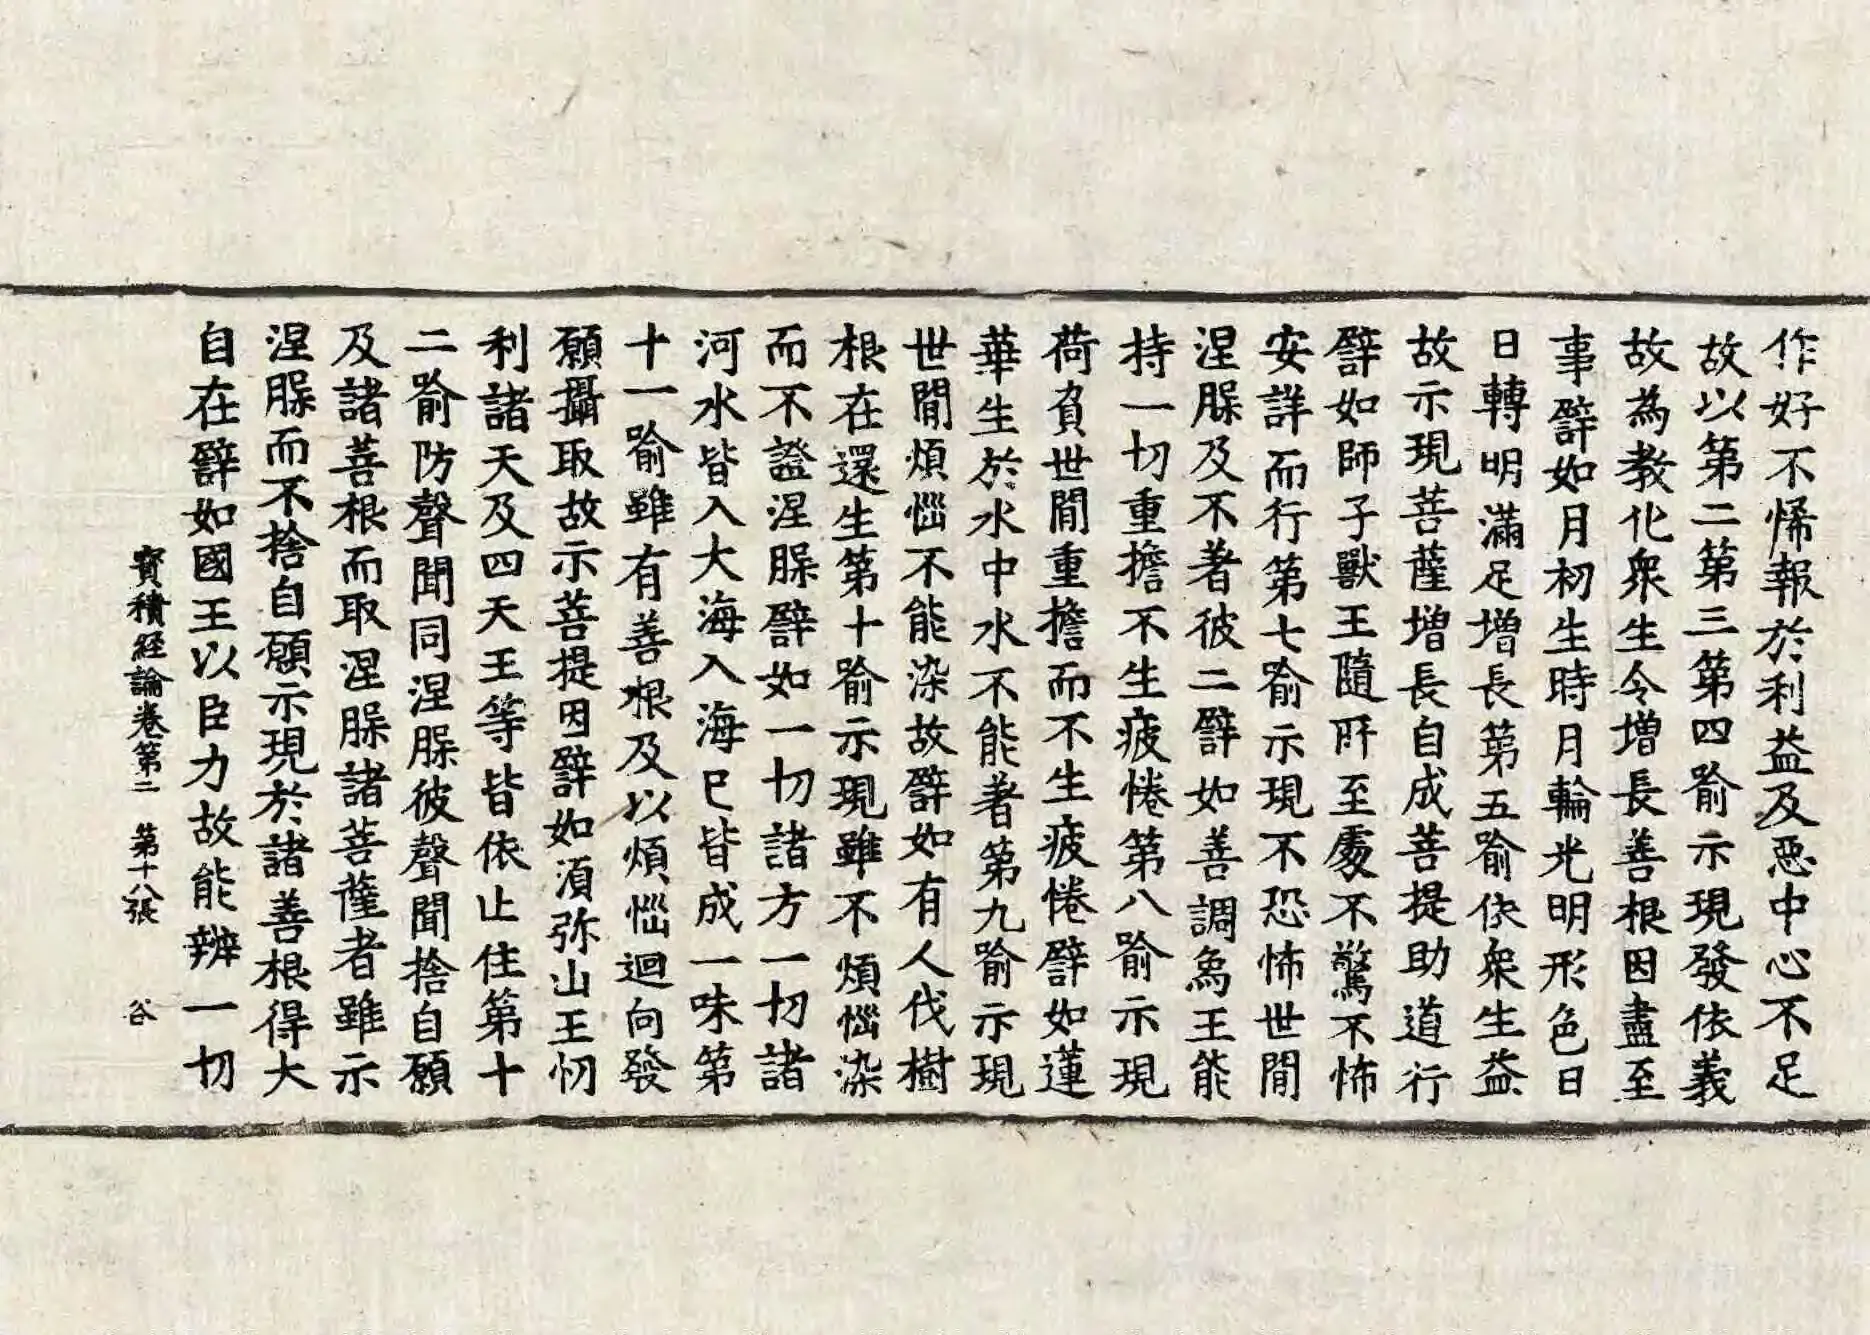 作好不悕報於利益及惡中心不足
故以第二第三第四喻示現發依義
故為教化眾生令增長善根因盡至
事譬如月初生時月輪光明形色日
日轉明滿足增長第五喻依眾生益
故示現菩薩增長自成菩提助道行
譬如師子獸王隨所至處不驚不怖
安詳而行第七喻示現不恐怖世間
涅槃及不著彼二譬如善調象王能
持一切重擔不生疲惓第八喻示現
荷負世間重擔而不生疲惓譬如蓮
華生於水中水不能著第九喻示現
世間煩惱不能染故譬如有人伐樹
根在還生第十喻示現雖不煩惱染
而不證涅槃譬如一切諸方一切諸
河水皆入大海入海已皆成一味第
十一喻雖有善根及以煩惱迴向發
願攝取故示菩提因譬如須弥山王忉
利諸天及四天王等皆依止住第十
二喻防聲聞同涅槃彼聲聞捨自願
及諸善根而取涅槃諸菩薩者雖示
涅槃而不捨自願示現於諸善根得大
自在譬如國王以臣力故能辨一切
寶積經論卷第三 第十八張 谷